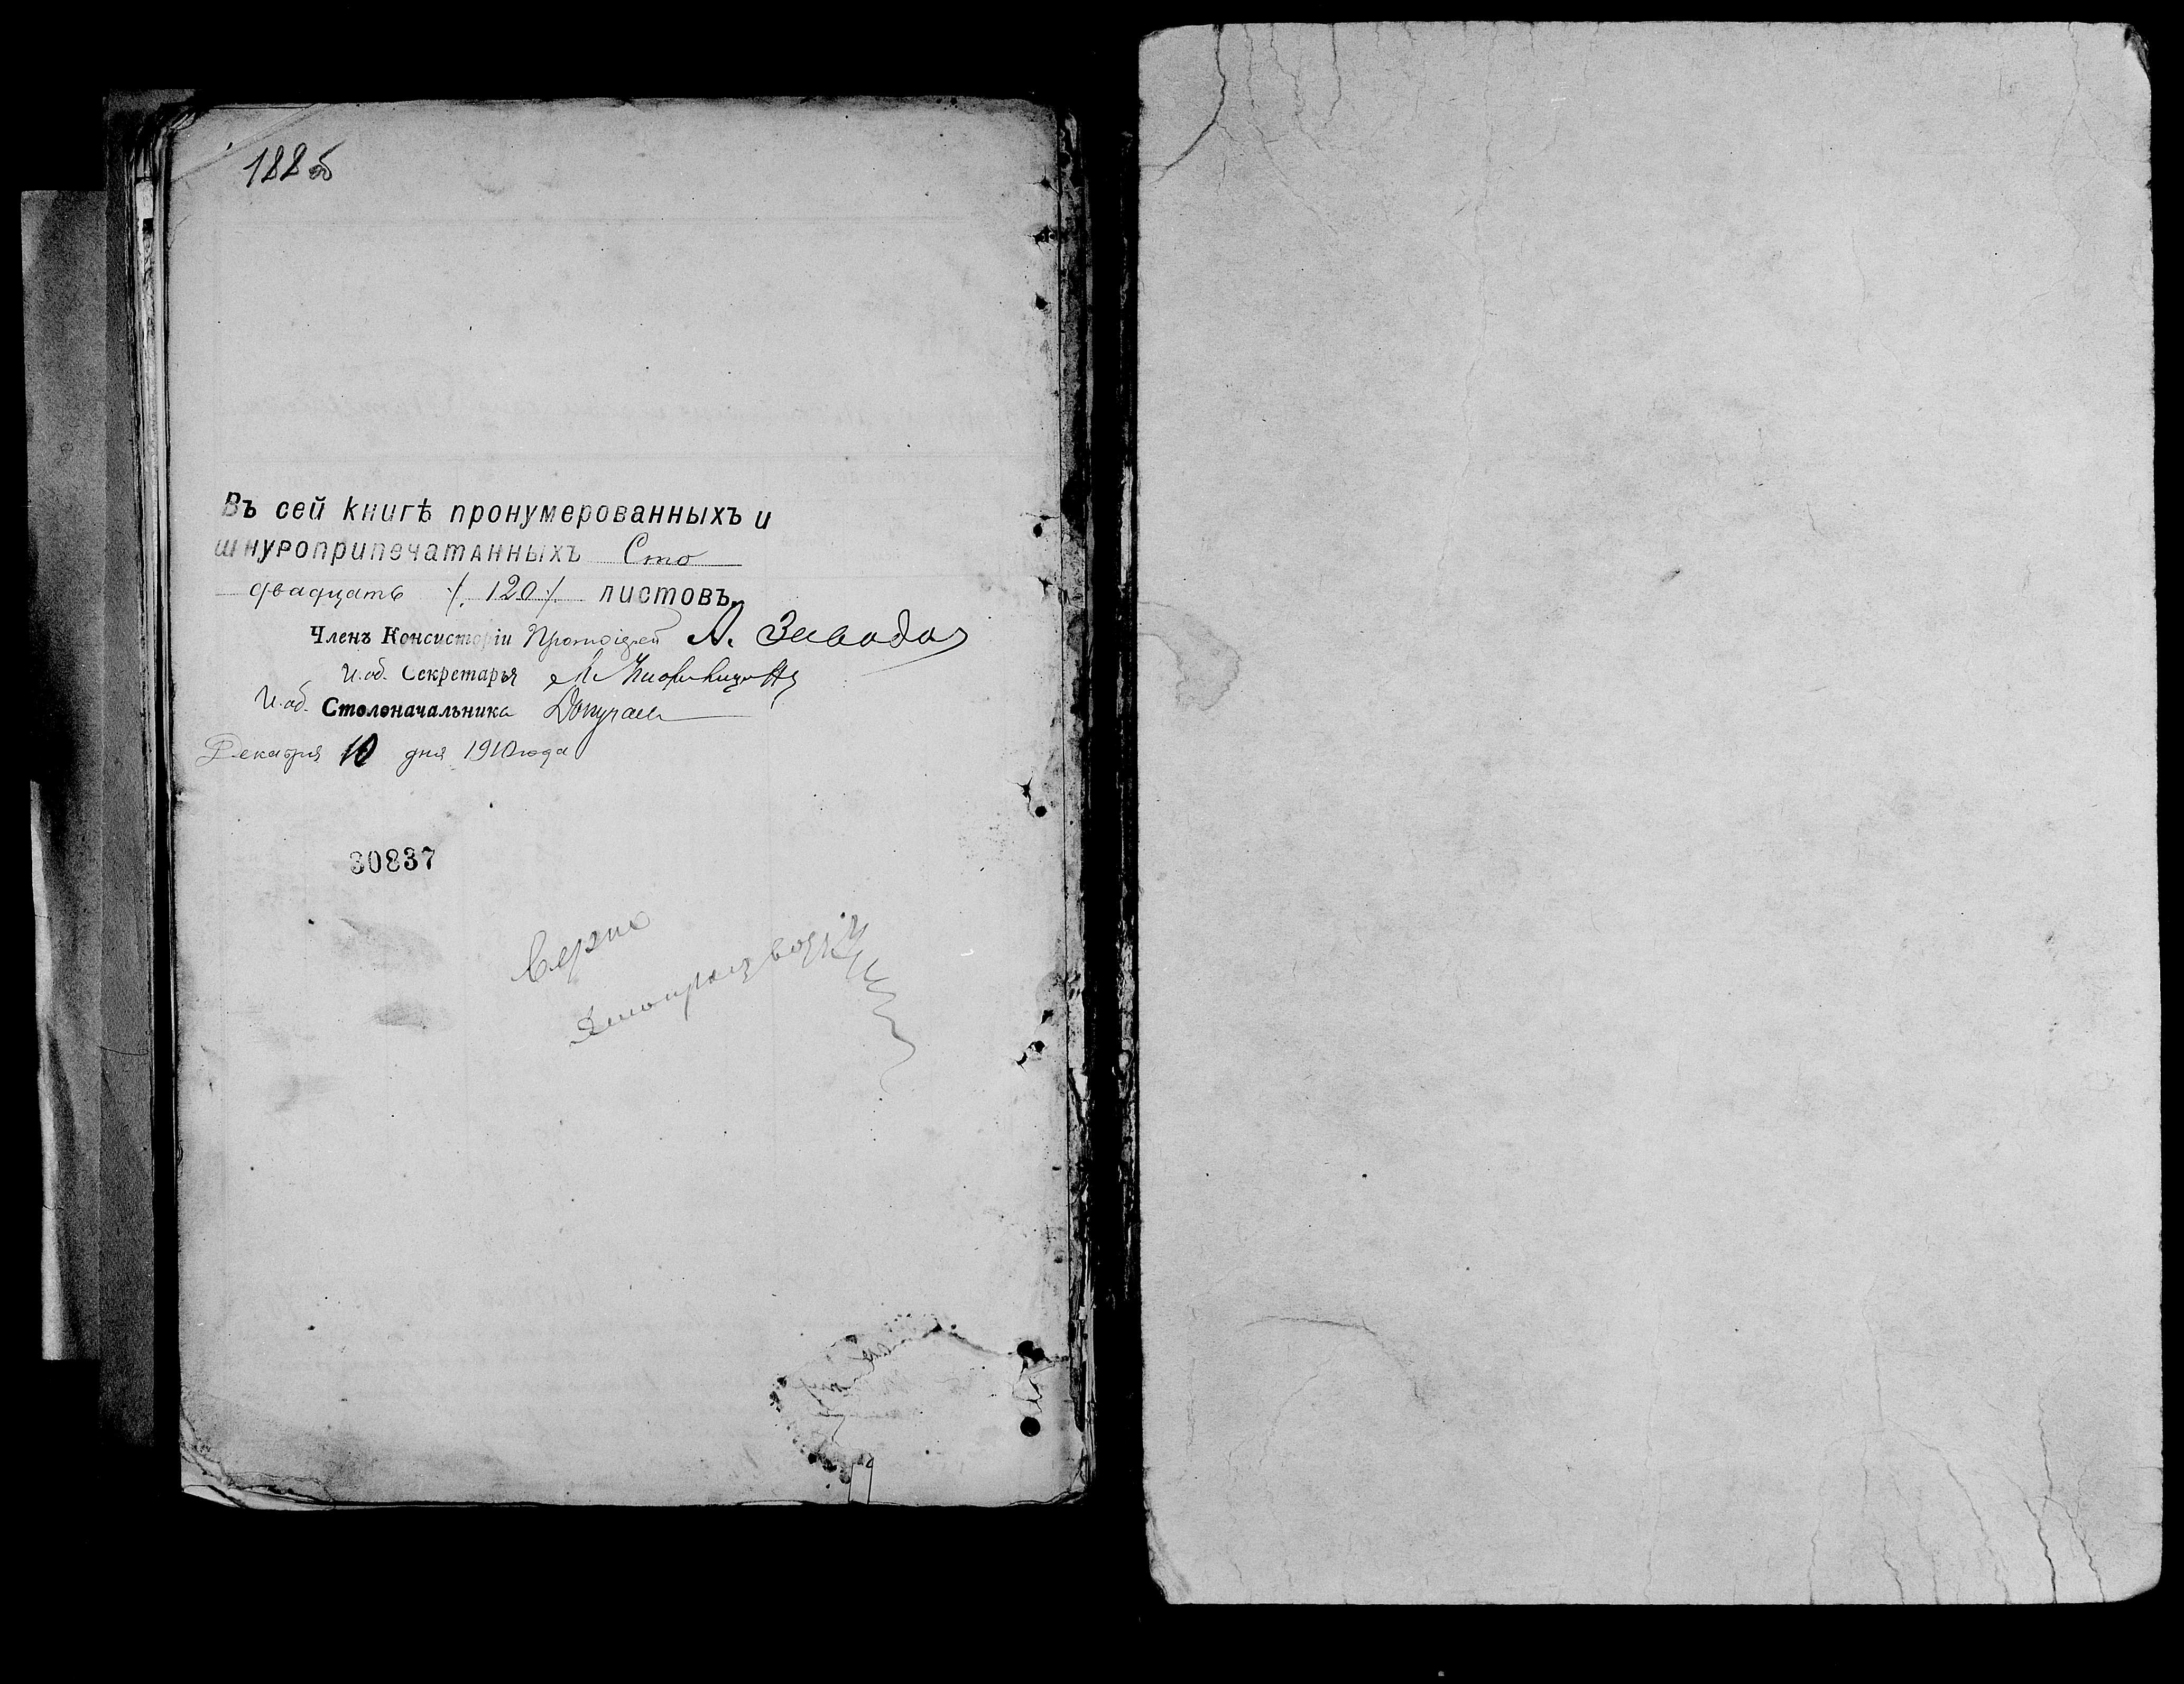 188 об
Въ сей книгѣ пронумерованныхъ и
шнуроприпечатанныхъ Сто
двадцать /. 120 /. листовъ
Членъ Консисторіи Протоіерей А.
И.об. Секретаря
И.об. Столоначальника Докучаев
Декабря 10 дня 1910 года
30837
Верно
Делопроизводитель